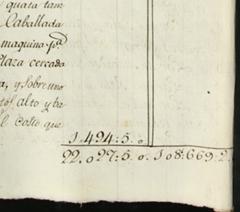 quata tam
Caballada
maquina pa.
Plaza cercada
a, y sobre uno
tos alto y ba
l costo que
1.494:5.
22.027:5.0. 108:669.2.